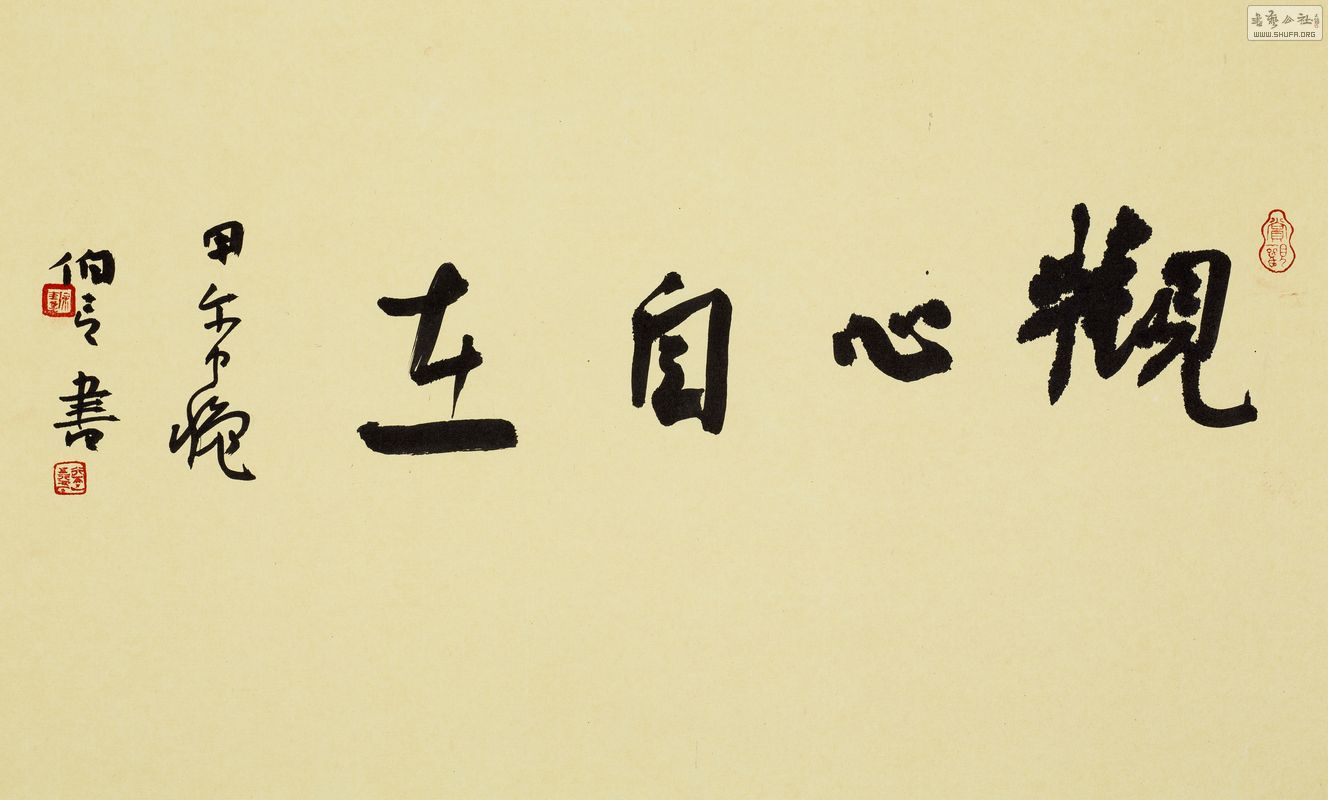 觀心自在
甲午中秋
伯言書
書藝公社
WWW.SHUFA.ORG